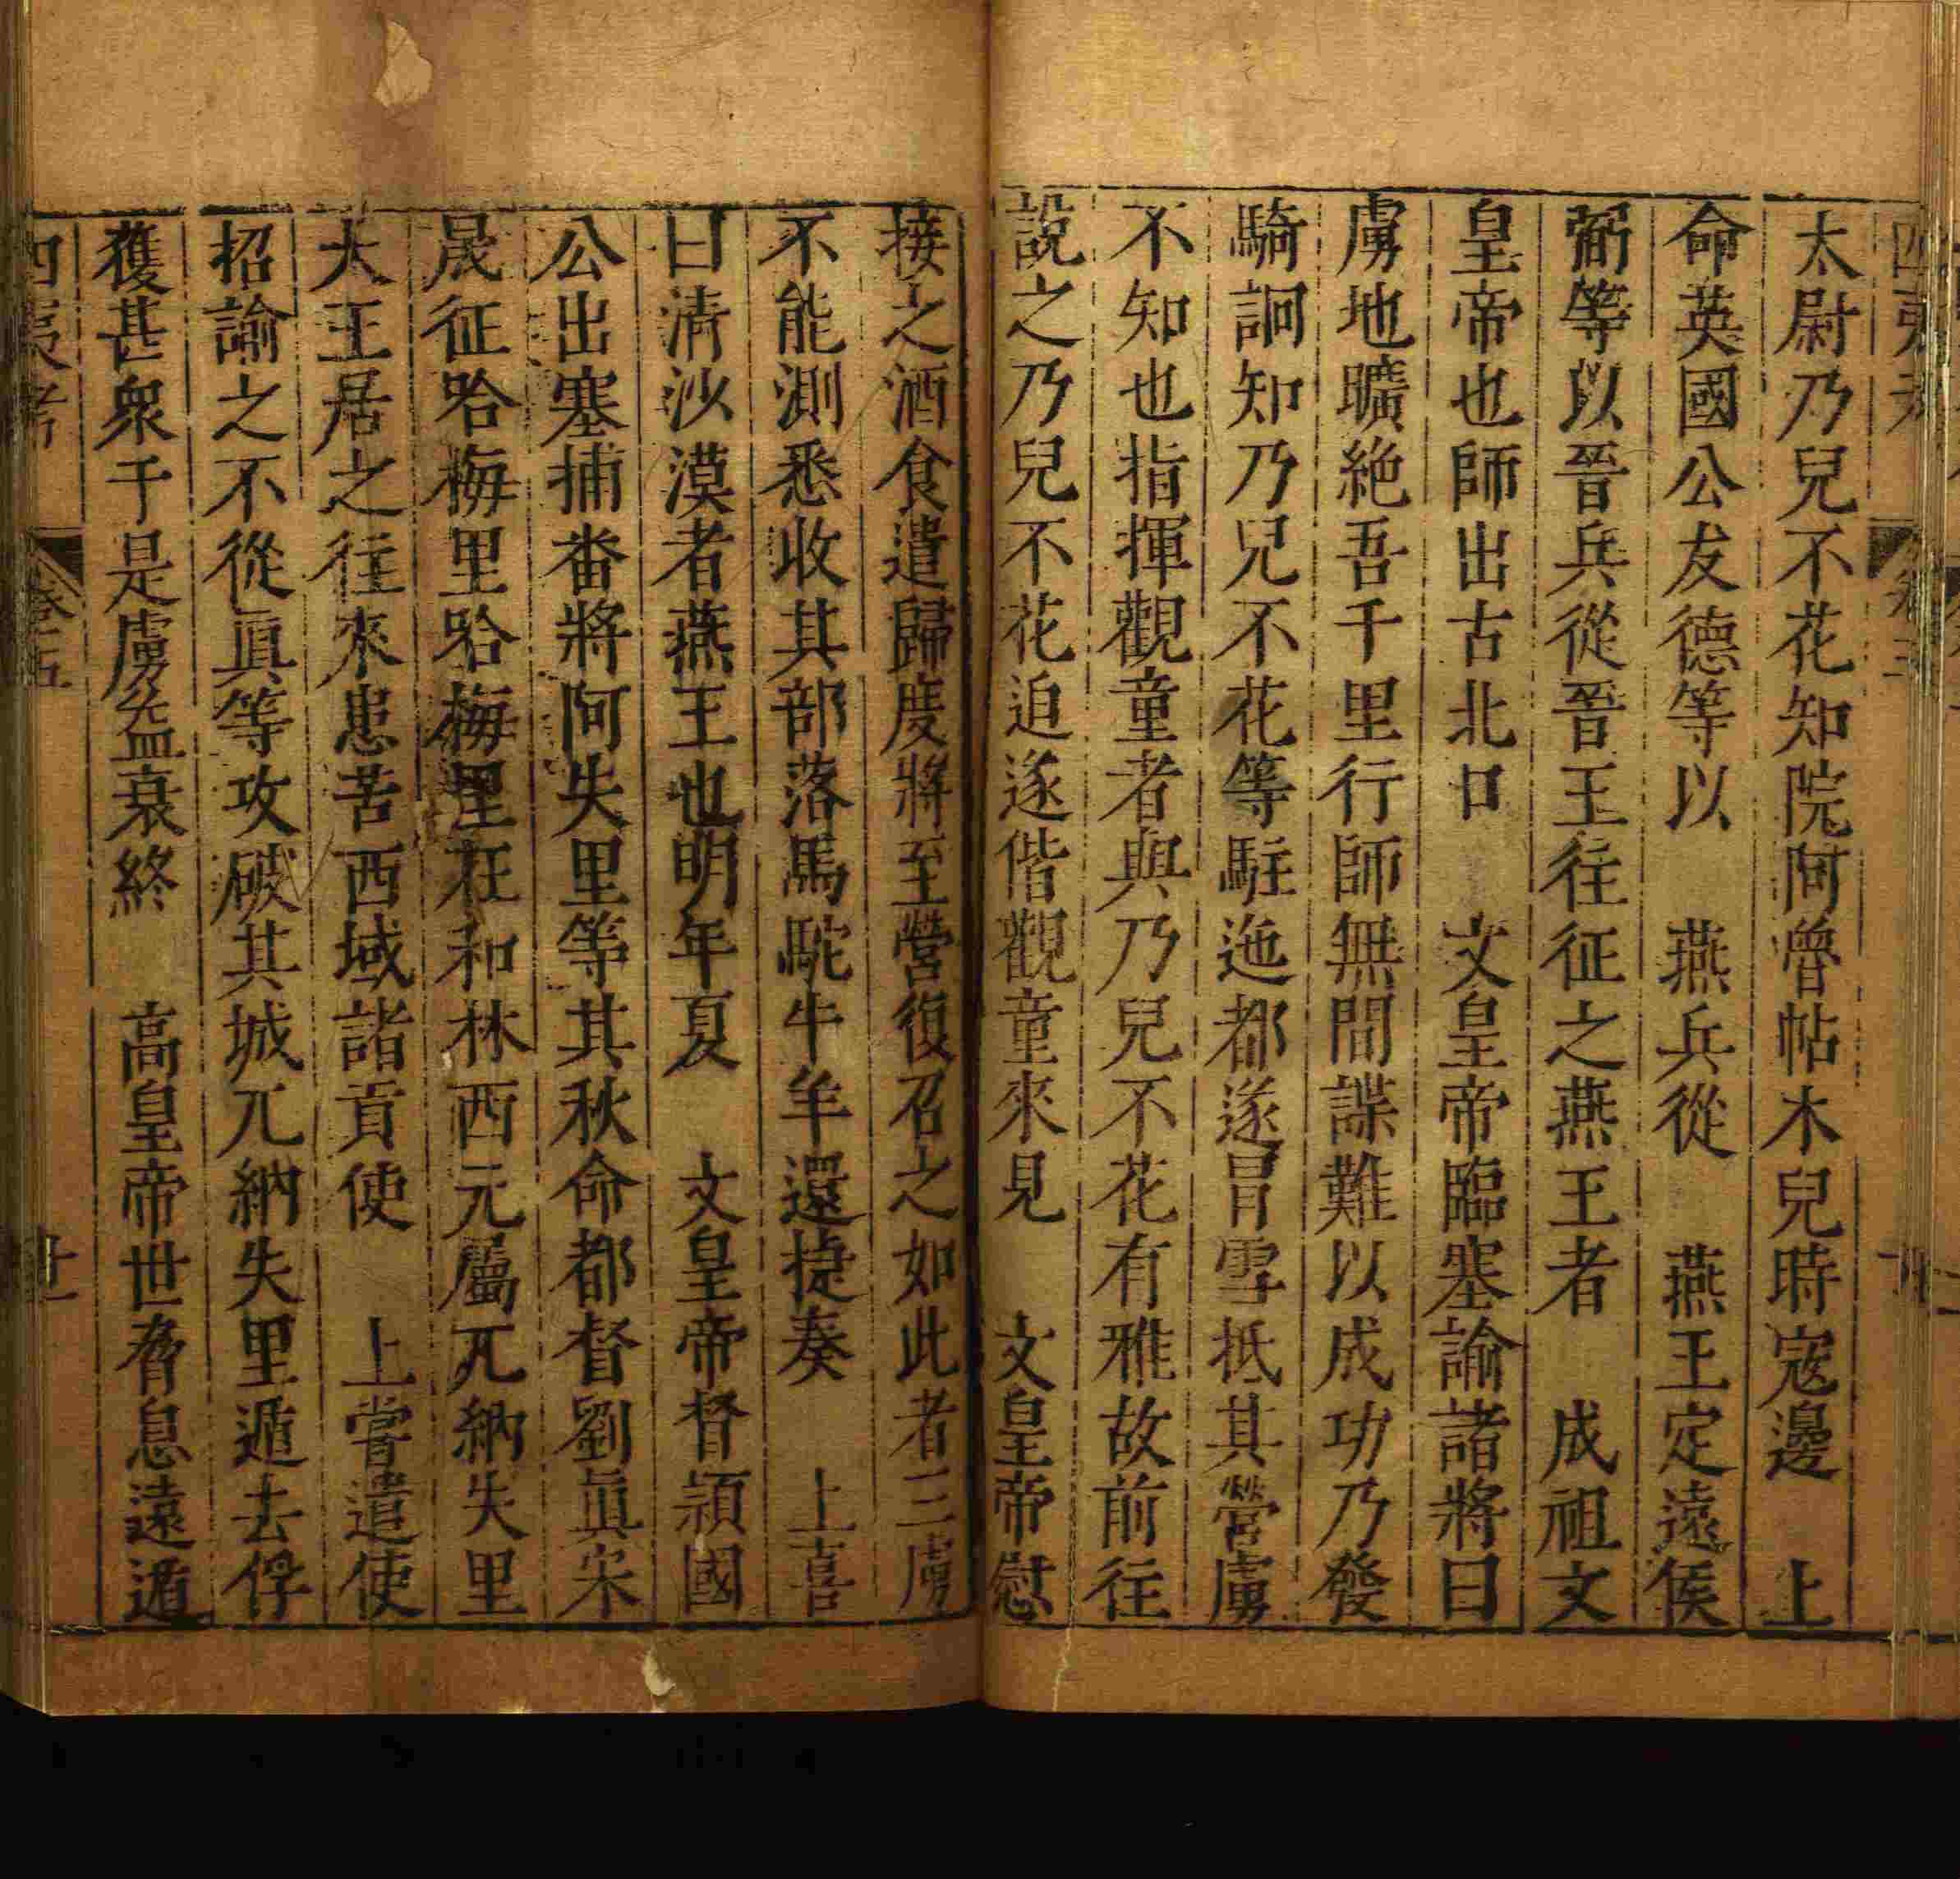 太尉乃兒不花知院阿魯帖木兒時寇邊　上
命英國公友德等以　燕兵從　燕王定遠侯
弼等以晉兵從晉王往征之燕王者　成祖文
皇帝也師出古北口　文皇帝臨塞諭諸將曰
虜地曠絶吾千里行師無間諜難以成功乃發
騎詗知乃兒不花等駐迤都遂冒雪抵其營虜
不知也指揮觀童者與乃兒不花有雅故前往
說之乃兒不花迫遂偕觀童來見　文皇帝慰
接之酒食遣歸度將至營復召之如此者三虜
不能測悉收其部落馬駝牛羊還捷奏　上喜
曰清沙漠者燕王也明年夏　文皇帝督潁國
公出塞捕畨將阿失里等其秋命都督劉眞宋
晟征哈梅里哈梅里在和林西元屬兀納失里
大王居之往來患苦西域諸貢使　上嘗遣使
招諭之不從眞等攻破其城兀納失里遁去俘
獲甚衆于是虜益衰終　高皇帝世脅息遠遁
四夷考　卷五　廿一